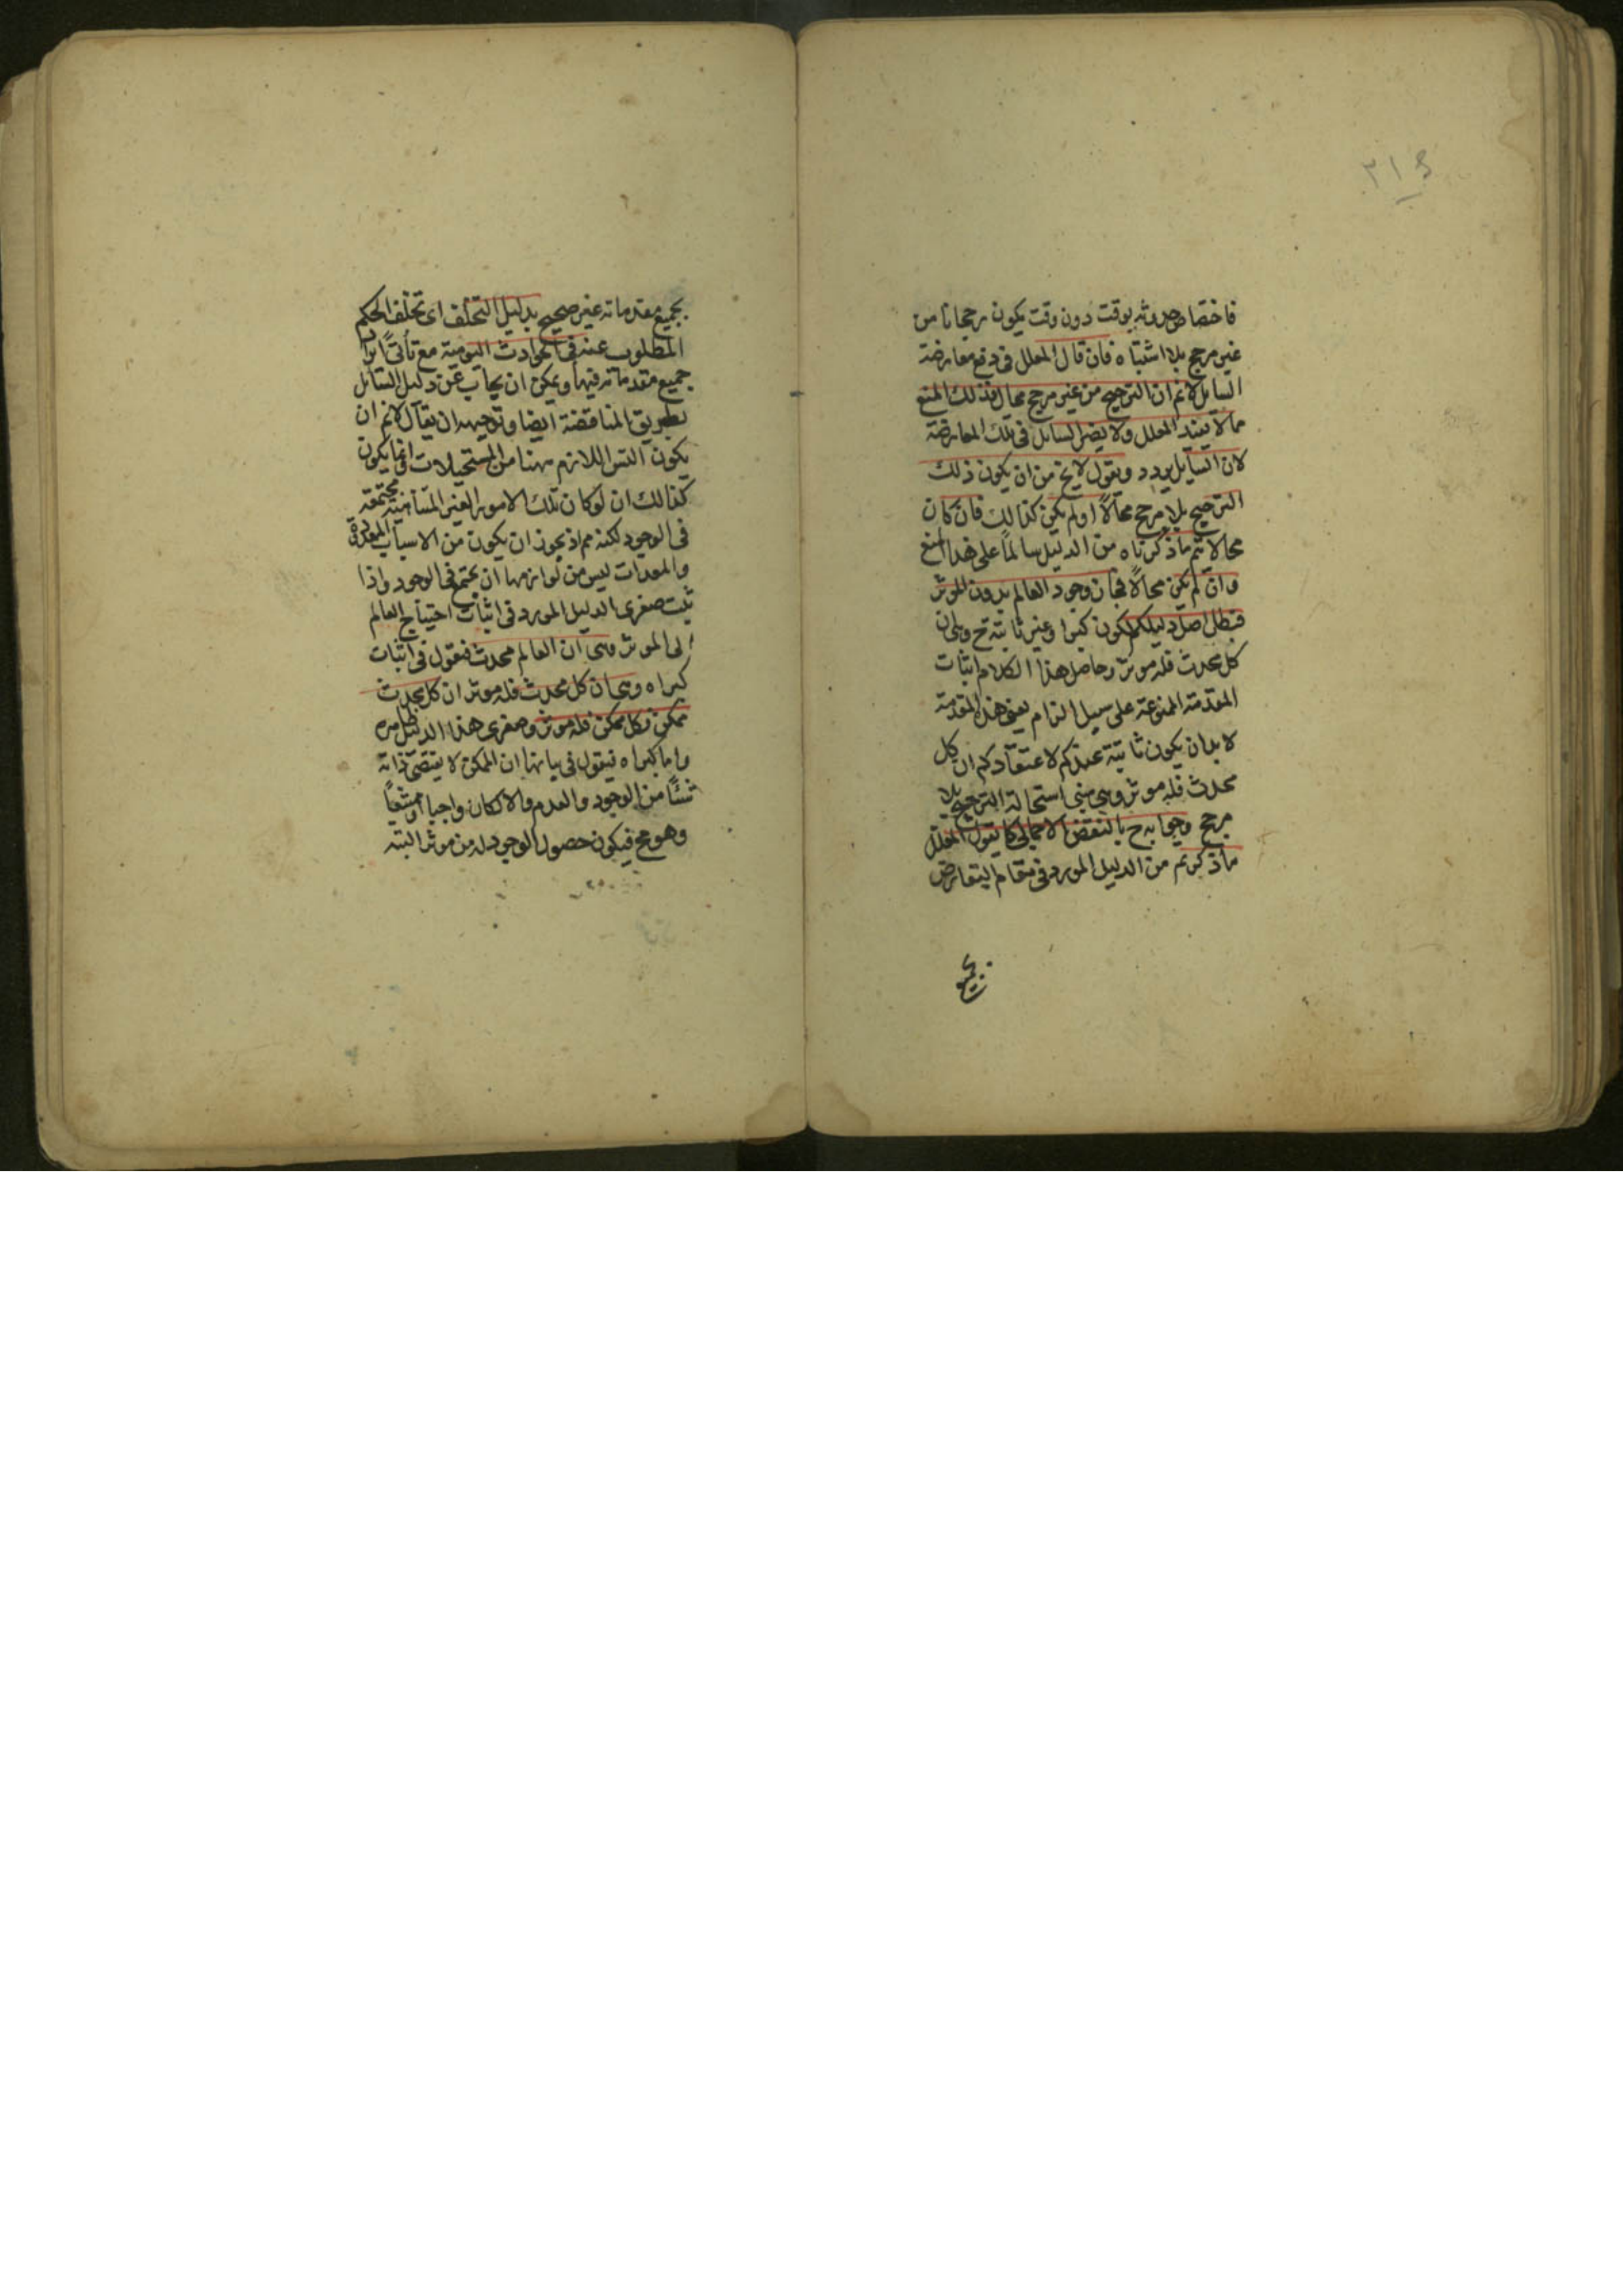 ٣١٤
فاختصاص حدوثه بوقت دون وقت يكون رجحانا من
غير مرجح بلا اشتباه فان قال المعلل فى دفع معارضة
السايل لانم ان الترجيح من غير مرجح محال فذلك المنع
مما لا يفيد المعلل ولا يضر السايل فى تلك المعارضة
لان السايل يردد ويقول لا يخ من ان يكون ذلك
الترجيح بلا مرجح محالاً اولم يكن كذالك فان كان
محالا يتم ماذكرناه من الدليل سالماً على هذا المنع
وان لم يكن محالاً فجاز وجود العالم بدون المؤثر
فبطل اصل دليلكم لكون كبراه غير ثابتة ح وهى ان
كل محدث فله موثر وحاصل هذا الكلام اثبات
المقدمة الممنوعة على سبيل الزام يعنى هذه المقدمة
لا بد ان يكون ثابتة عندكم لاعتقادكم ان كل
محدث فله موثر وهى مبنى استحالة الترجيح بلا
مرجح وجوابه ح بالنقض الاجمالى كما يقول المعلل
ماذكرتم من الدليل المورد فى مقام التعارض
بجميع
بجميع مقدماته غير صحيح بدليل التخلف اى تخلف الحكم
المطلوب عنه فى الحوادث اليومية مع تأتى ايراد
جميع مقدماته فيها ويمكن ان يجاب عن دليل السايل
بطريق المناقضة ايضا وتوجيهه ان يقال لانم ان
يكون التس اللازم ههنا من المستحيلات وانما يكون
كذالك ان لوكان تلك الامور الغير المتناهية مجتمعة
فى الوجود لكنه مم اذ يجوز ان يكون من الاسباب المعدة
والمعدات ليس من لوازمها ان يجتمع فى الوجود واذا
ثبت صغرى الدليل المورد فى اثبات احتياج العالم
الى الموثر وهى ان العالم محدث فنقول فى اثبات
كبراه وهى ان كل محدث فله موثر ان كل محدث
ممكن وكل ممكن فله موثر وصغرى هذا الدليل ظاهره
واما كبراه فيقول فى بيانها ان الممكن لا يقتضى ذاته
شئاً من الوجود والعدم والا لكان واجبا او ممتنعاً
وهو مح فيكون حصول الوجود له من موثر البته